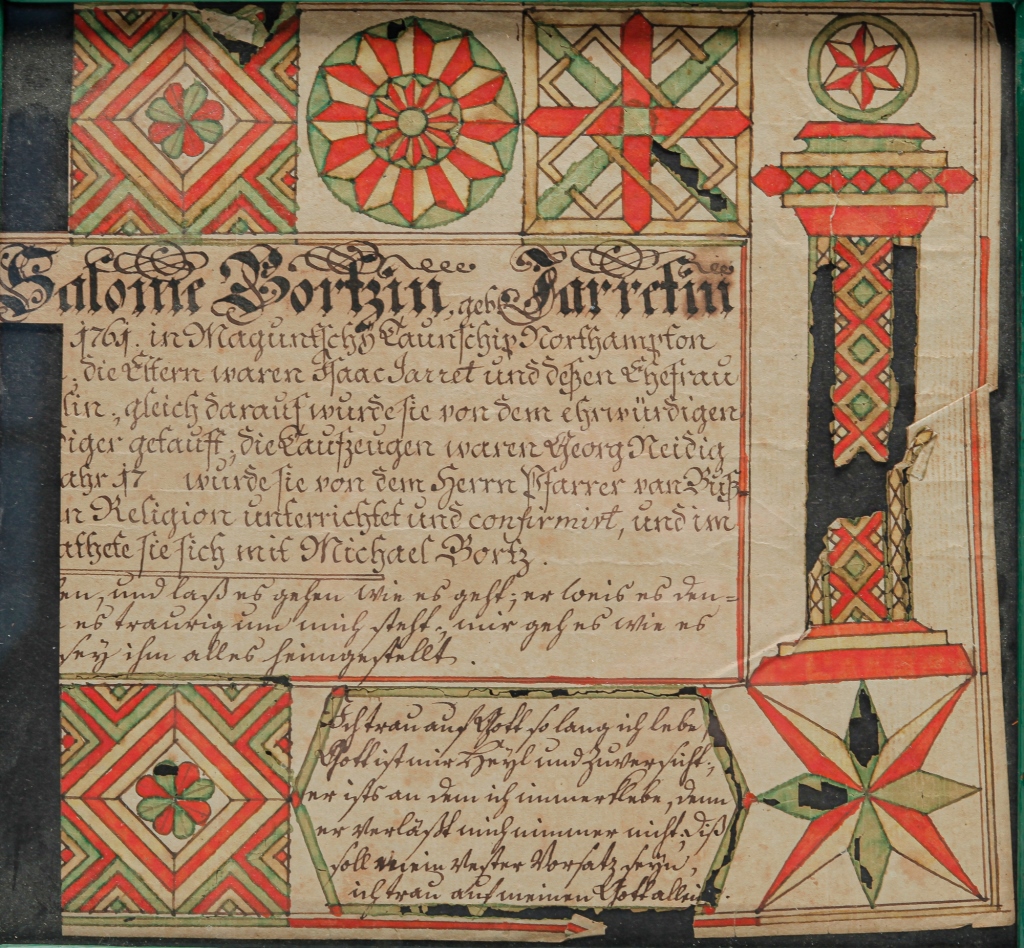 Salome Bortzin, geb. Jarretin
1761. in Maguntschy Taunschip Northampton
die Eltern waren Isaac Jarret und deßen Ehefrau
lin, gleich darauf wurde sie von dem ehrwürdigen
iger getaufft, die Taufzeugen waren Georg Neidig
ahr 17 wurde sie von dem Herrn Pfarrer van Buß=
n Religion unterrichtet und confirmirt, und im
athete sie sich mit Michael Bortz.
en, und laß es gehen wie es geht; er weis es den=
es traurig um mich steht, mir geh es wie es
sey ihm alles heimgestellt.
Ich trau auf Gott so lang ich lebe
Gott ist mir Heyl und Zuversicht;
er ists an dem ich immer klebe, denn
er verläßt mich nimmer nicht: diß
soll mein vester Vorsatz seyn,
ich trau auf meinen Gott allein.